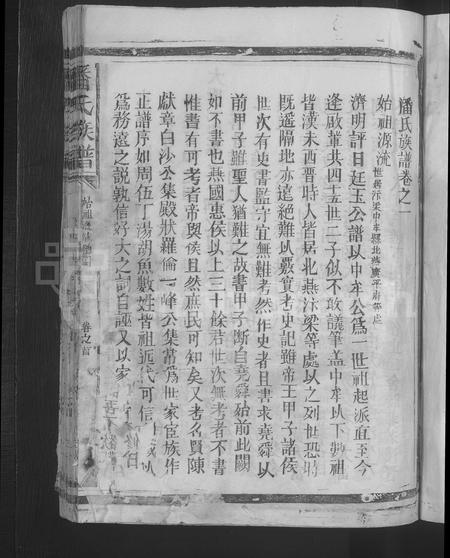 潘氏族譜卷之一
始祖源流 世居汴梁中牟縣北燕廣平府等處
濟明評曰廷玉公譜以中牟公為一世祖起派直至今
逢啟輩共四十五世二子似不敢議筆蓋中牟以下典祖
皆漢末西晋時人皆居北燕汴梁等處以之列世恐時
既遥隔地亦遠絕難以覈實考史記雖帝王甲子諸侯
世次有史書監守宜無難考然作史者且書求堯舜以
前甲子雖聖人猶難之故書甲子断自堯舜始前此闕
如不書也燕國惠侯以上三十餘君世次無考者不書
惟書有可考者帝與侯且然庶民可知矣又考名賢陳
獻章白沙公集殿狀羅倫一峰公集常為世家宦族作
正譜序如周伍丁湯胡魚數姓皆祖近代可信
為務遠之說敦信好大之言自誣又以家
潘氏族譜
始祖源流
卷之首